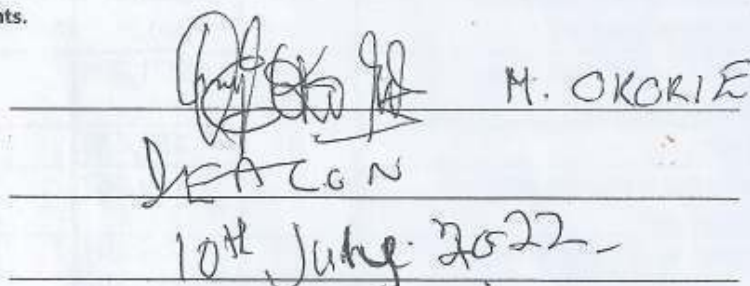 nts.
M. OKORIE
DEACON
10th 2022